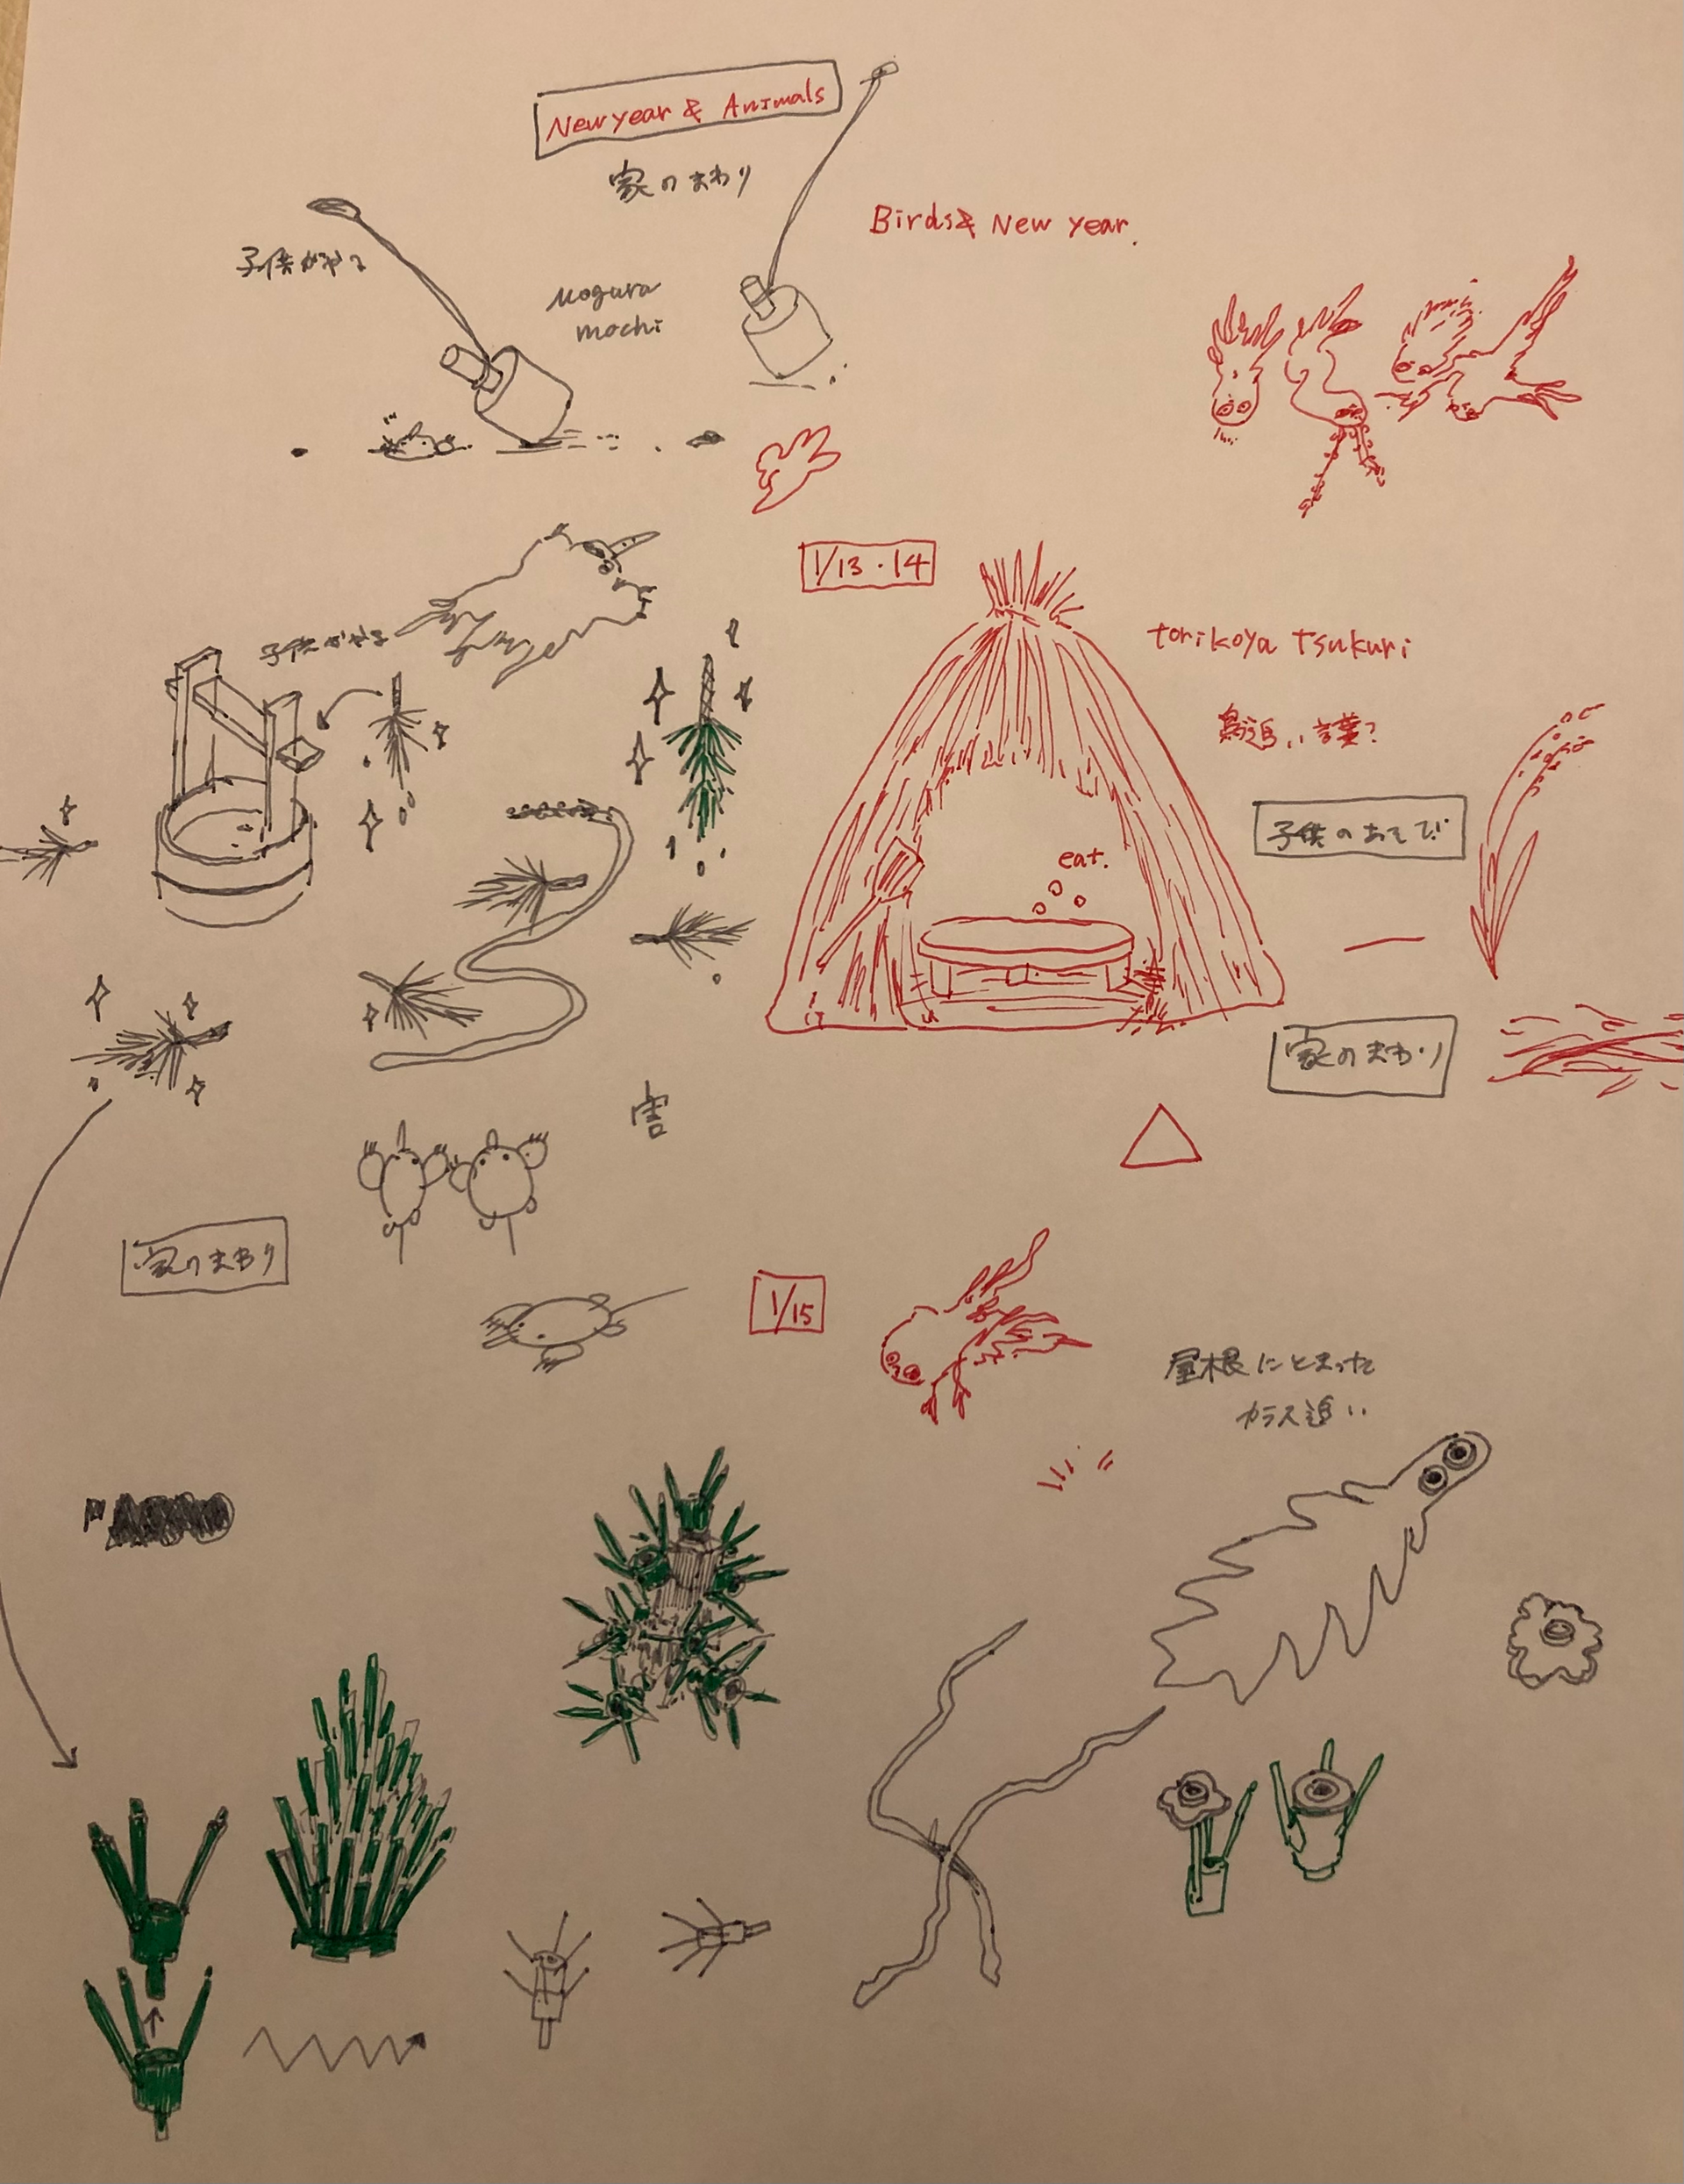 New year & Animals
家のまわり
Birds & New year.
子供がやる
Mogura
mochi
1/13・14
子供がやる
torikoya Tsukuri
鳥追い 言葉?
子供のあそび
eat.
家のまわり
害
家のまわり
1/15
屋根にとまった
カラス追い